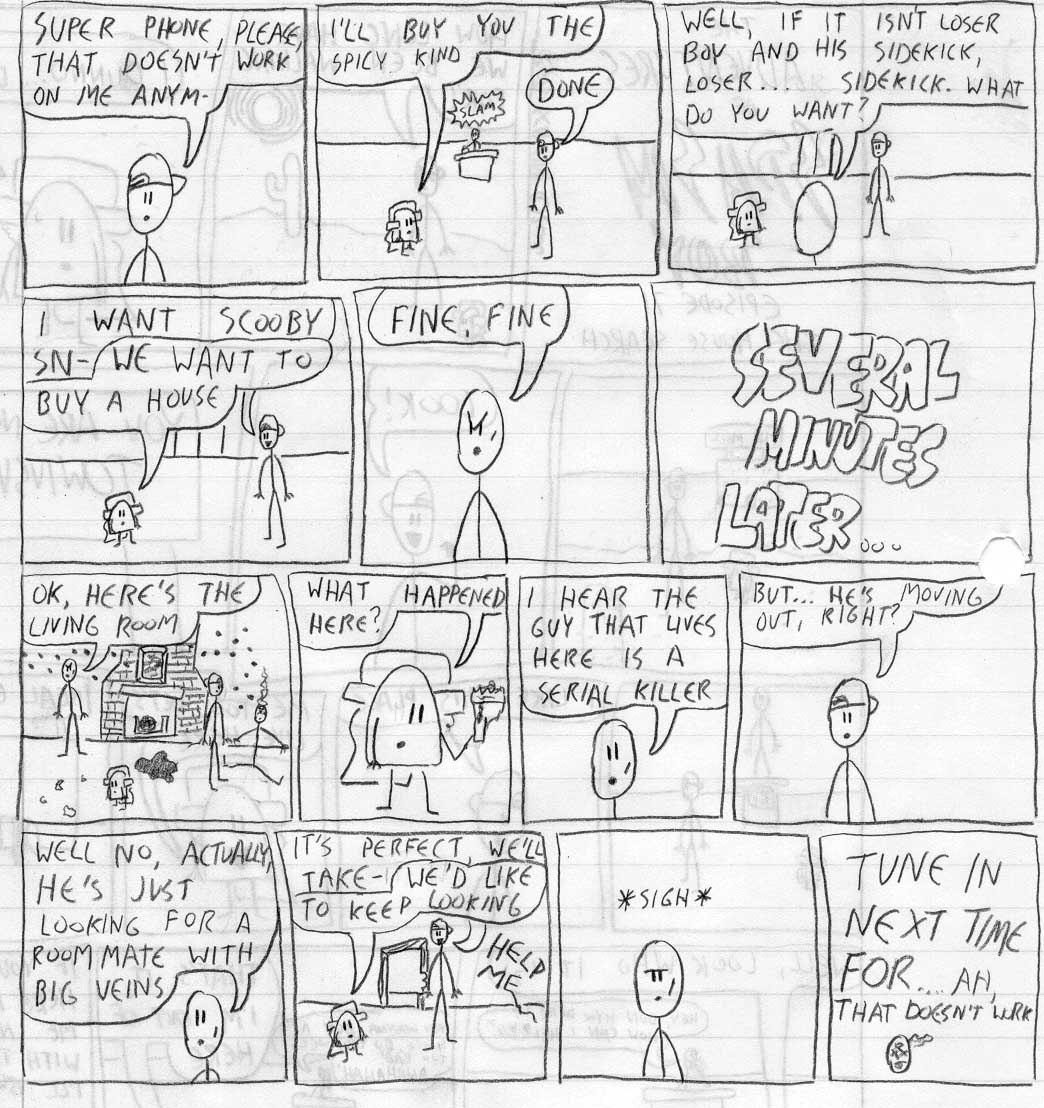 SUPER PHONE, PLEASE,
THAT DOESN'T WORK
ON ME ANYM-
I'LL BUY YOU THE
SPICY KIND
SLAM
DONE
WELL, IF IT ISN'T LOSER
BOY AND HIS SIDEKICK,
LOSER.... SIDEKICK. WHAT
DO YOU WANT?
I WANT SCOOBY
SN-
WE WANT TO
BUY A HOUSE
FINE, FINE
SEVERAL
MINUTES
LATER...
OK, HERE'S THE
LIVING ROOM
WHAT HAPPENED
HERE?
I HEAR THE
GUY THAT LIVES
HERE IS A
SERIAL KILLER
BUT... HE'S MOVING
OUT, RIGHT?
WELL NO, ACTUALLY,
HE'S JUST
LOOKING FOR A
ROOMMATE WITH
BIG VEINS
IT'S PERFECT, WE'LL
TAKE-
WE'D LIKE
TO KEEP LOOKING
HELP
ME
*SIGH*
TUNE IN
NEXT TIME
FOR.... AH,
THAT DOESN'T WORK